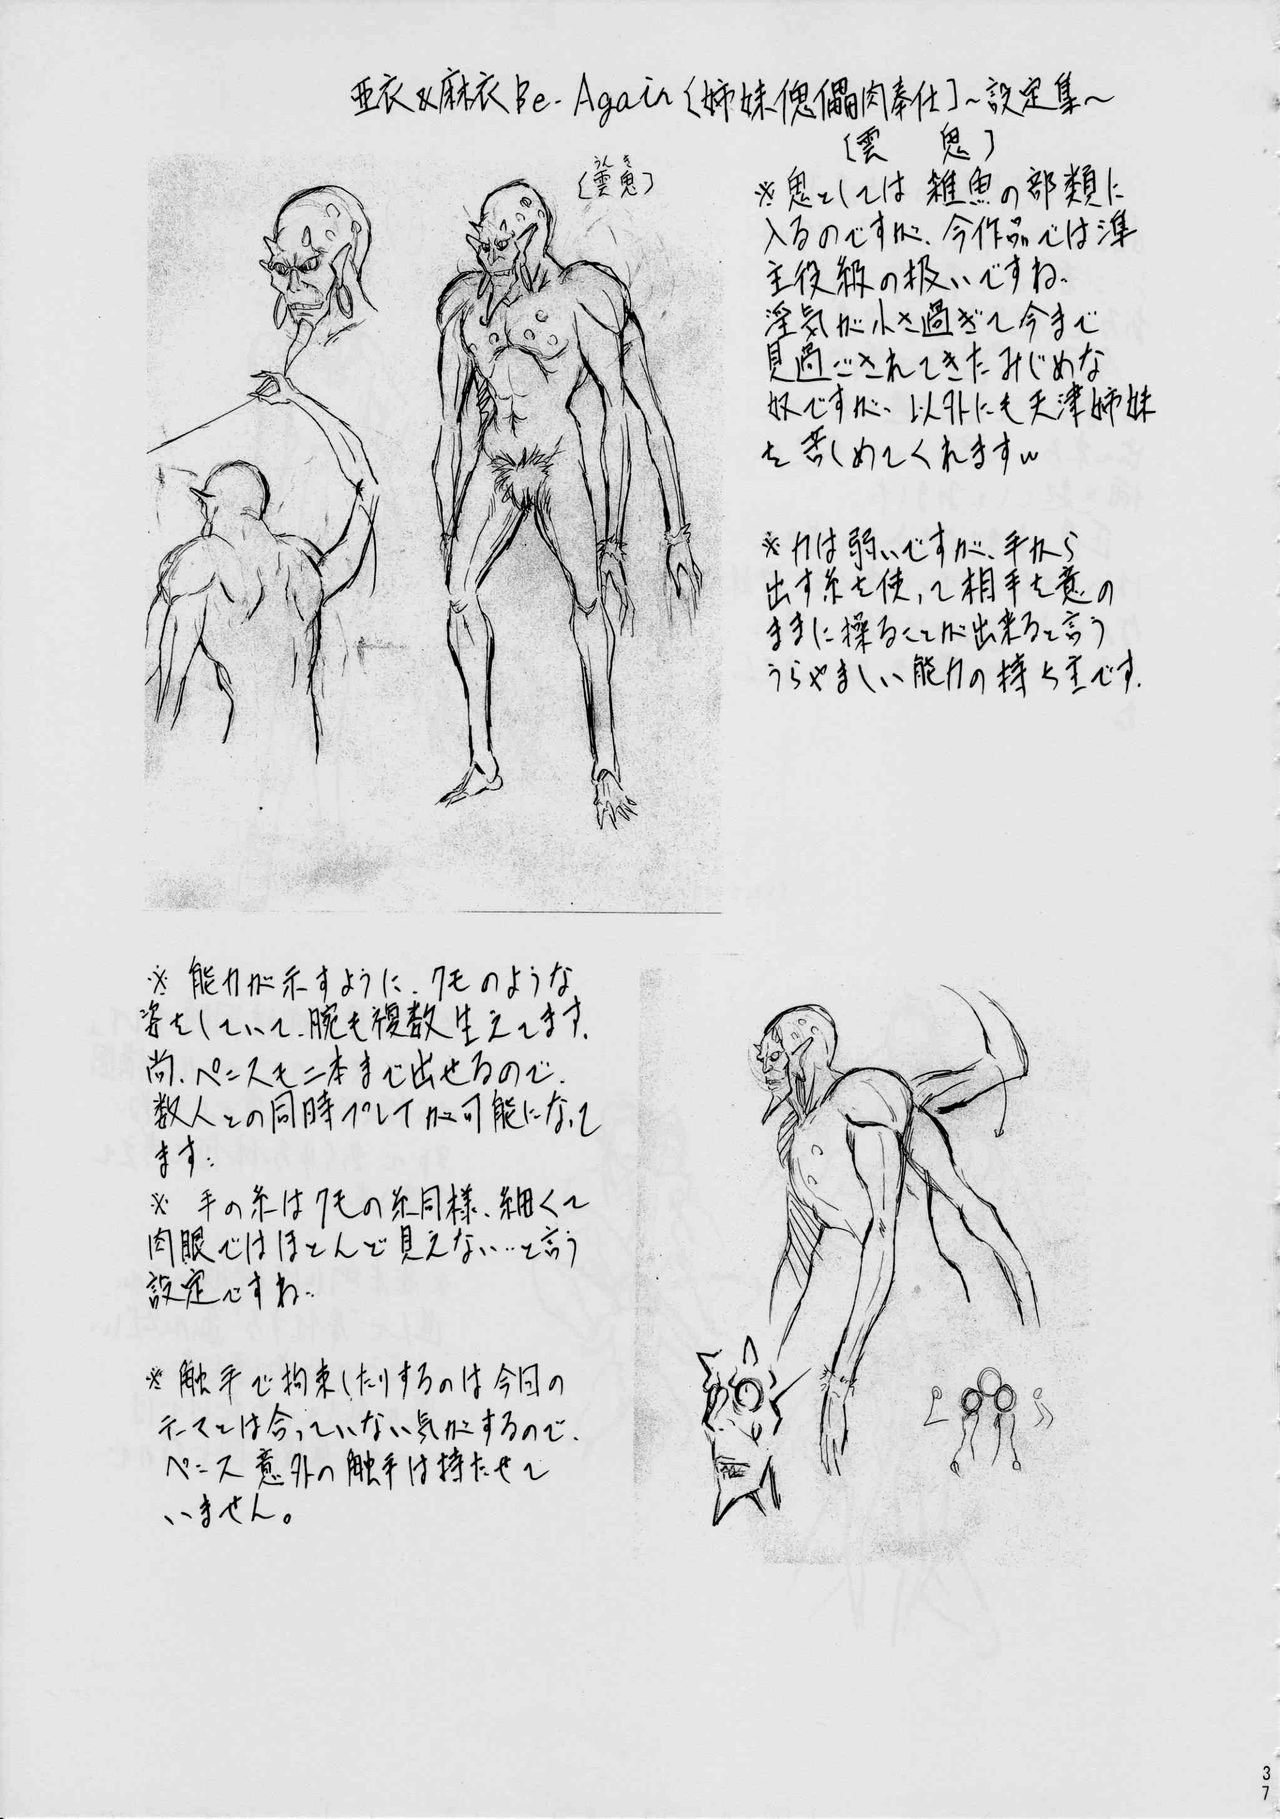 亜衣&麻衣 Be-Again〔姉妹傀儡肉奉仕〕～設定集～
〔雲鬼〕
うんき
〔雲鬼〕
※鬼としては雑魚の部類に
入るのですが、今作品では準
主役級の扱いですね。
淫気が小さ過ぎて今まで
見過ごされてきたみじめな
奴ですが、以外にも天津姉妹
を苦しめてくれますw
※力は弱いですが、手から
出す糸を使って相手を意の
ままに操ることが出来ると言う
うらやましい能力の持ち主です。
※能力が示すように、クモのような
姿をしていて、腕も複数生えてます。
尚、ペニスも二本まで出せるので、
数人との同時プレイが可能になって
ます。
※手の糸はクモの糸同様、細くて
肉眼ではほとんど見えない…と言う
設定ですね。
※触手で拘束したりするのは今回の
テーマとは合っていない気がするので、
ペニス意外の触手は持たせて
いません。
37